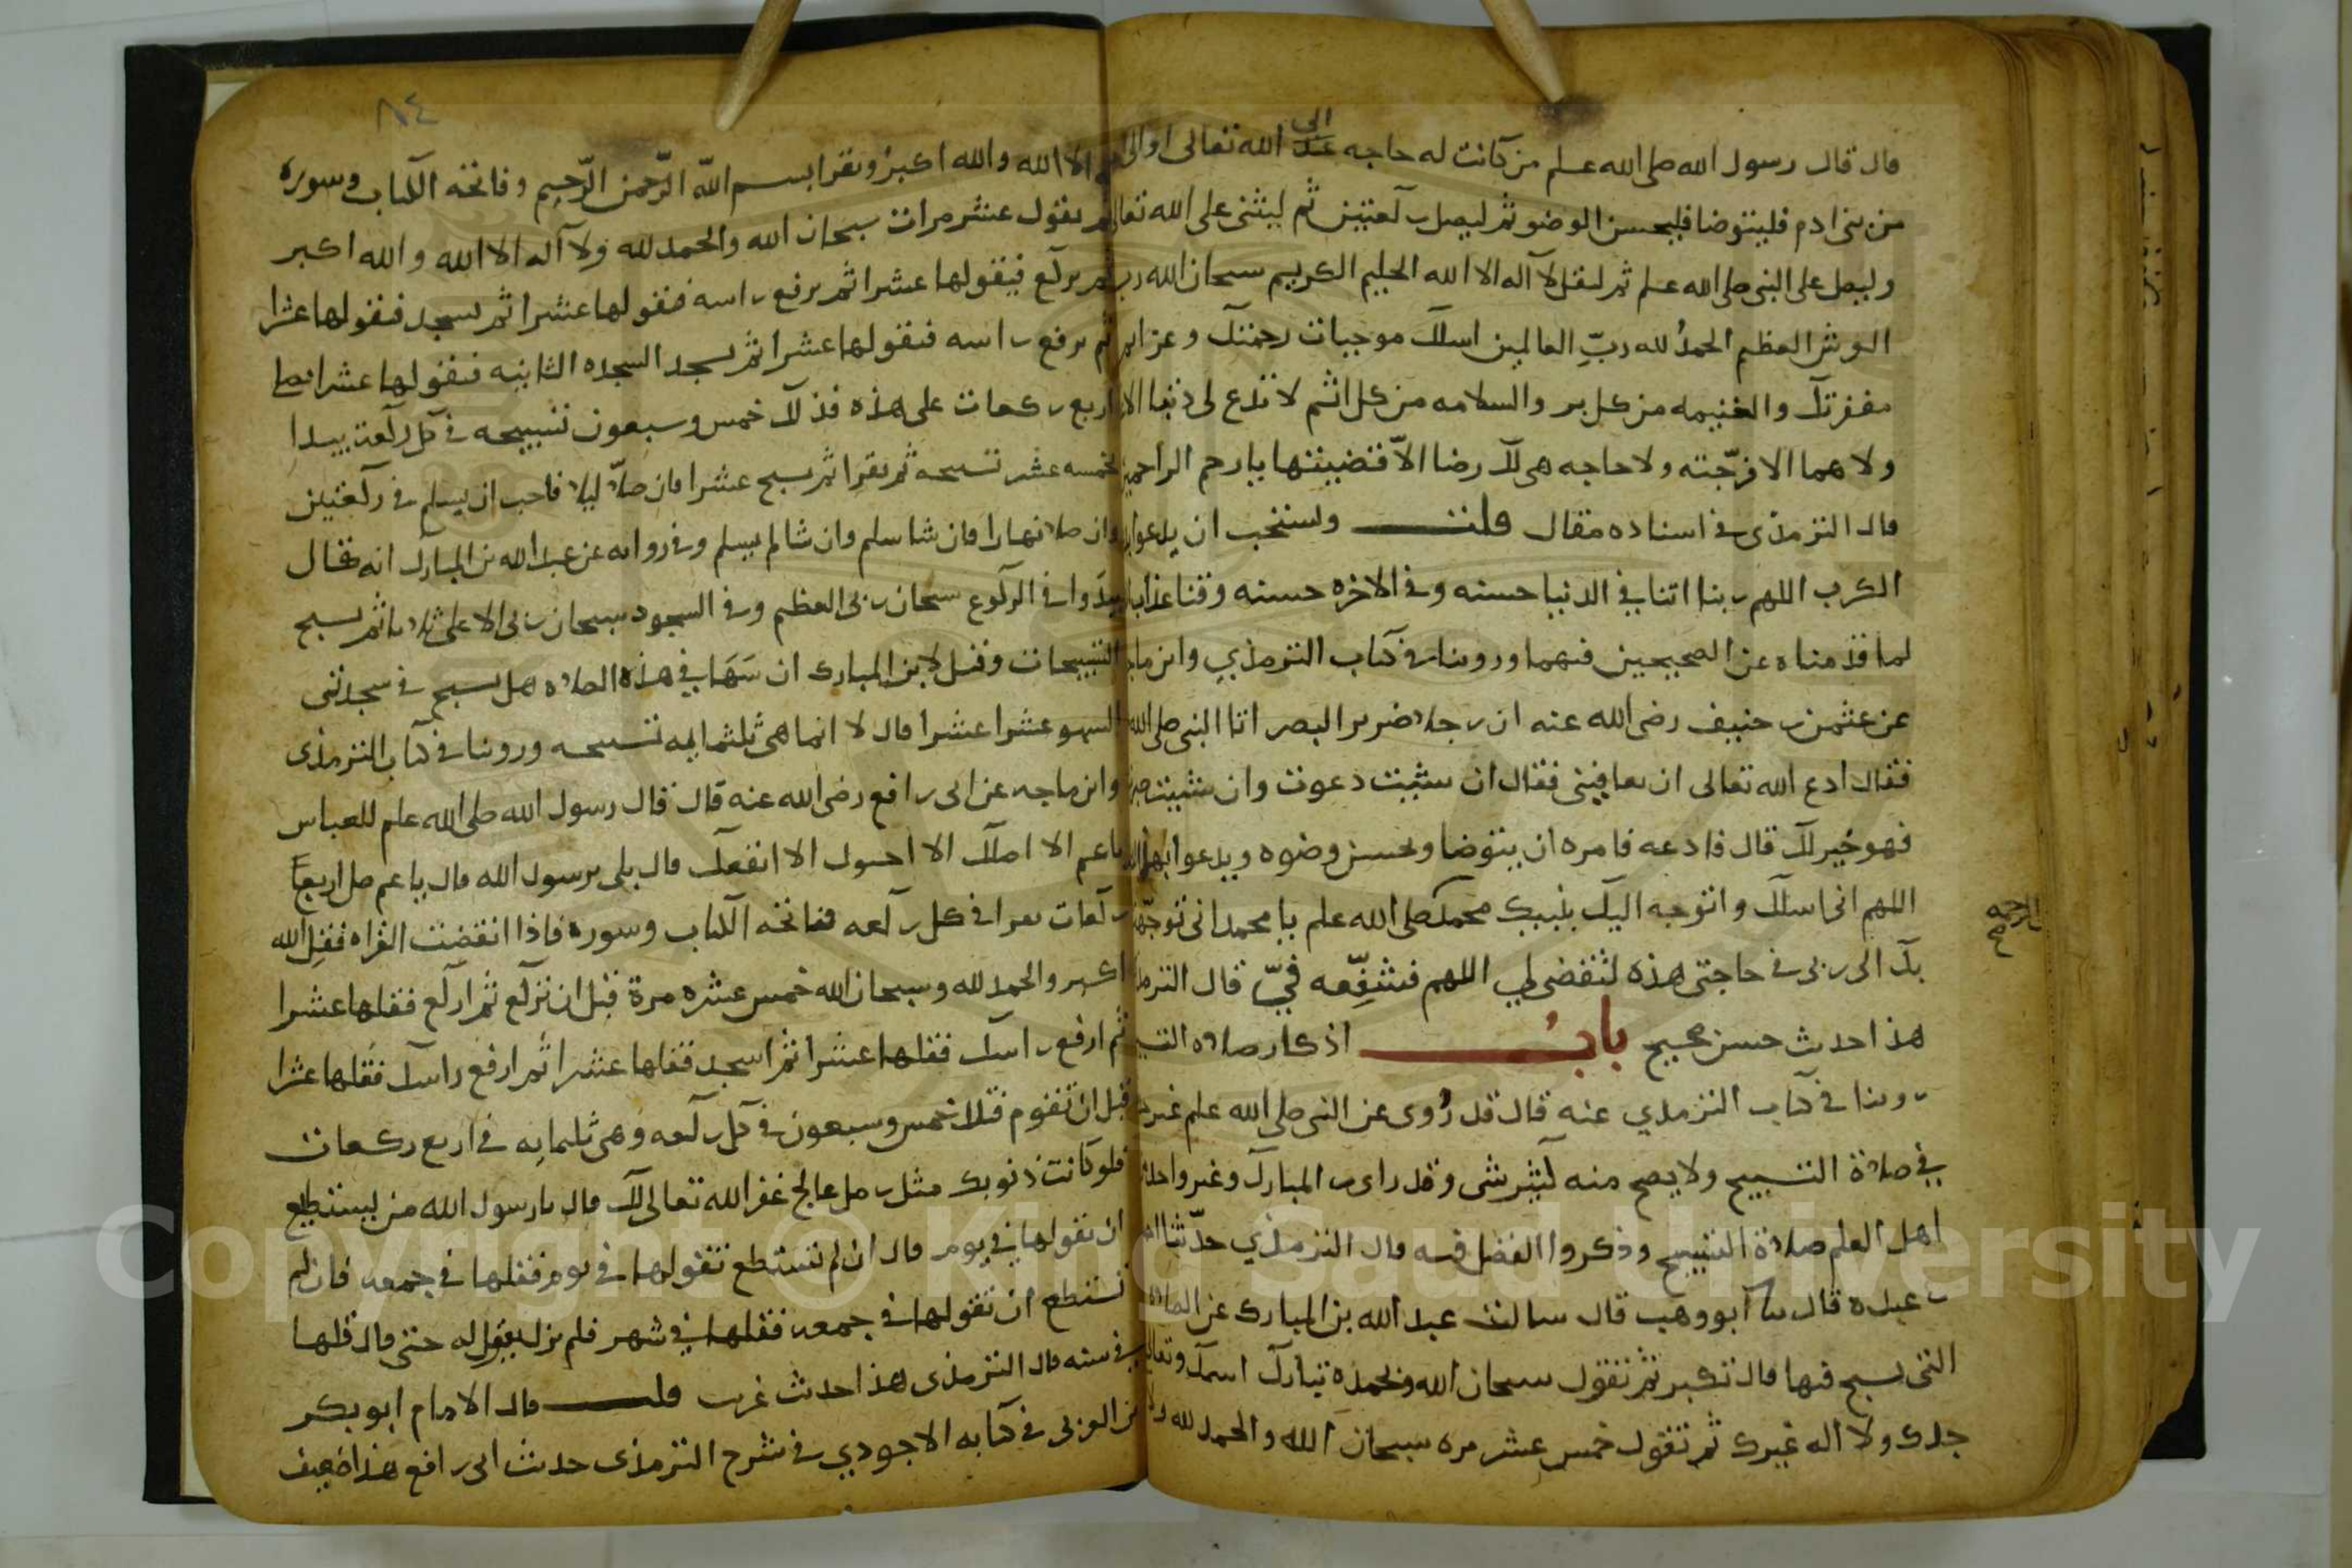 قال قال رسول الله صلى الله علىه وسلم من كانت له حاجه الى الله تعالى او الى
من بنى ادم فليتوضا فليحسن الوضو ثم ليصل ركعتين ثم ليثنى على الله تعالى
وليصل على النبى صلى الله علىه وسلم ثم ليقل لا اله الا الله الحليم الكريم سبحان الله رب
العرش العظيم الحمد لله رب العالمين اسلك موجبات رحمتك وعزايم
مغفرتك والغنيمه من كل بر والسلامه من كل اثم لا تدع لى ذنبا الا
ولا هما الا فرجته ولا حاجه هى لك رضا الا قضيتها يا ارحم الراحمين
قال الترمذى فى اسناده مقال قلت ويستحب ان يدعوا
الكرب اللهم ربنا اتنا في الدنيا حسنه وفى الاخره حسنه وقنا عذاب
لما قدمناه عن الصحيحين فيهما وروينا فى كتاب الترمذي وابن ماجه
عن عثمن بن حنيف رضى الله عنه ان رجلا ضرير البصر اتا النبى صلى الله
فقال ادع الله تعالى ان يعافينى فقال ان شيت دعوت وان شيت صبرت
فهو خير لك قال فادعه فامره ان يتوضا ويحسن وضوه ويدعوا بهذا
اللهم انى اسلك واتوجه اليك بنبيك محمد صلى الله علىه وسلم يا محمد انى توجهت
الرحمه
بك الى ربى فى حاجتى هذه لتقضى لي اللهم فشفعه في قال الترمذى
هذا حديث حسن صحيح باب اذكار صلاه التسبيح
روينا فى كتاب الترمذي عنه قال قد روى عن النبى صلى الله علىه وسلم غير
في صلاة التسبيح ولا يصح منه كثير شى وقد راى بن المبارك وغير واحد
اهل العلم صلاة التسبيح وذكروا الفضل فيه قال الترمذي حدثنا
بن عبده قال ثنا ابو وهب قال سالت عبد الله بن المبارك عن الصلاه
التى يسبح فيها قال تكبر ثم تقول سبحان الله وبحمده تبارك اسمك وتعالى
جدك ولا اله غيرك ثم تقول خمس عشر مره سبحان الله والحمد لله ولا
٨٤
الا الله والله اكبر ويقرا بسم الله الرحمن الرحيم وفاتحه الكتاب وسوره
ثم يقول عشر مرات سبحان الله والحمد لله ولا اله الا الله والله اكبر
ثم يركع فيقولها عشرا ثم يرفع راسه فيقولها عشرا ثم يسجد فيقولها عشرا
ثم يرفع راسه فيقولها عشرا ثم يسجد السجده الثانيه فيقولها عشرا
اربع ركعات على هذه فذلك خمس وسبعون تسبيحه فى كل ركعة يبدا
بخمسه عشر تسبيحه ثم يقرا ثم يسبح عشرا فان صلا ليلا فاحب ان يسلم فى ركعتين
وان صلا نهارا فان شا سلم وان شا لم يسلم وفى روايه عن عبد الله بن المبارك انه قال
يبدوا فى الركوع سبحان ربى العظيم وفى السجود سبحان ربى الاعلى ثلاثا ثم يسبح
التسبيحات وقيل لابن المبارك ان سها في هذه الصلاه هل يسبح فى سجدتى
السهو عشرا عشرا قال لا انما هى ثلثمايه تسبيحه وروينا فى كتاب الترمذى
وابن ماجه عن ابى رافع رضى الله عنه قال قال رسول الله صلى الله علىه وسلم للعباس
يا عم الا اصلك الا احبوك الا انفعك قال بلى يرسول الله قال يا عم صل اربع
ركعات تقرا فى كل ركعه بفاتحه الكتاب وسورة فاذا انقضت القراه فقل الله
اكبر والحمد لله وسبحان الله خمس عشره مرة قبل ان تركع ثم اركع فقلها عشرا
ثم ارفع راسك فقلها عشرا ثم اسجد فقلها عشرا ثم ارفع راسك فقلها عشرا
قبل ان تقوم فتلك خمس وسبعون فى كل ركعه وهى ثلثمايه فى اربع ركعات
فلو كانت ذنوبك مثل رمل عالج غفر الله تعالى لك قال يا رسول الله من يستطيع
ان يقولها في يوم قال ان لم تستطع تقولها فى يوم فقلها فى جمعه فان لم
تستطع ان تقولها فى جمعه فقلها في شهر فلم يزل يقول له حتى قال قلها
فى سنه قال الترمذى هذا حديث غريب قلت قال الامام ابو بكر
بن العربى فى كتابه الاحوذي فى شرح الترمذى حديث ابى رافع هذا ضعيف
Copyright © King Saud University